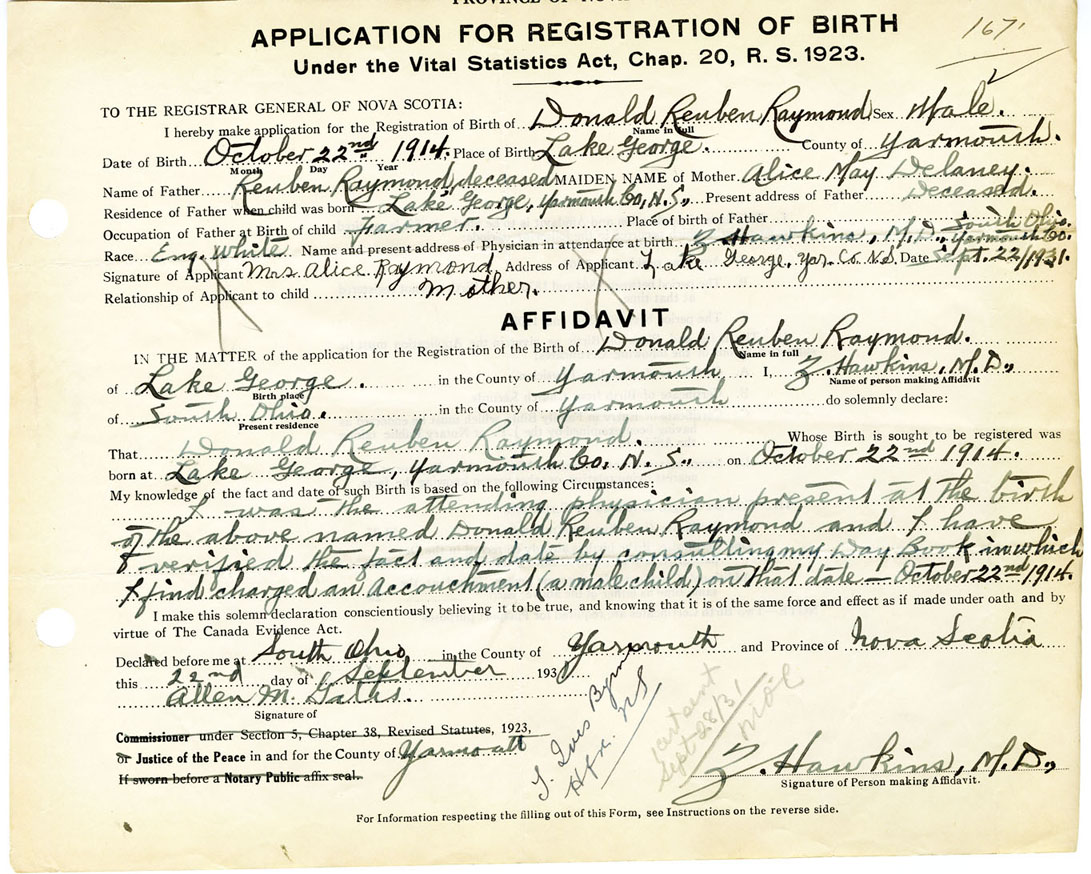 PROVINCE OF
APPLICATION FOR REGISTRATION OF BIRTH
1671
Under the Vital Statistics Act, Chap. 20, R. S. 1923.
TO THE REGISTRAR GENERAL OF NOVA SCOTIA:
I hereby make application for the Registration of Birth of Donald Reuben Raymond Sex Male.
Name in full
Date of Birth October 22nd 1914. Place of Birth Lake George. County of Yarmouth.
Month Day Year
Name of Father Reuben Raymond, deceased MAIDEN NAME of Mother Alice May Delaney.
Residence of Father when child was born Lake George, Yarmouth Co, N.S., Present address of Father Deceased.
Occupation of Father at Birth of child Farmer. Place of birth of Father
Race Eng. White Name and present address of Physician in attendance at birth Z Hawkins, M.D., South Ohio, Yarmouth Co.
Signature of Applicant Mrs Alice Raymond Address of Applicant Lake George, Yar. Co. N.S. Date Sept. 22/1931.
Relationship of Applicant to child Mother.
AFFIDAVIT
IN THE MATTER of the application for the Registration of the Birth of Donald Reuben Raymond.
Name in full
of Lake George. in the County of Yarmouth I, Z. Hawkins, M.D.,
Birth place Name of person making Affidavit
of South Ohio. in the County of Yarmouth do solemnly declare:
Present residence
That Donald Reuben Raymond. Whose Birth is sought to be registered was
born at Lake George, Yarmouth Co, N. S., on October 22nd 1914.
My knowledge of the fact and date of such Birth is based on the following Circumstances:
I was the attending physician present at the birth
of the above named Donald Reuben Raymond and I have
verified the fact and date by consulting my Day Book in which
I find charged an Accouchment (a male child) on that date – October 22nd 1914.
I make this solemn declaration conscientiously believing it to be true, and knowing that it is of the same force and effect as if made under oath and by
virtue of The Canada Evidence Act.
Declared before me at South Ohio in the County of Yarmouth and Province of Nova Scotia
this 22nd day of September 1931
Allen M.
Signature of
Commissioner under Section 5, Chapter 38, Revised Statutes, 1923,
or Justice of the Peace in and for the County of Yarmouth
If sworn before a Notary Public affix seal.
Hfx. NS
Sept 28/31
Z. Hawkins, M.D.,
Signature of Person making Affidavit.
For Information respecting the filling out of this Form, see Instructions on the reverse side.